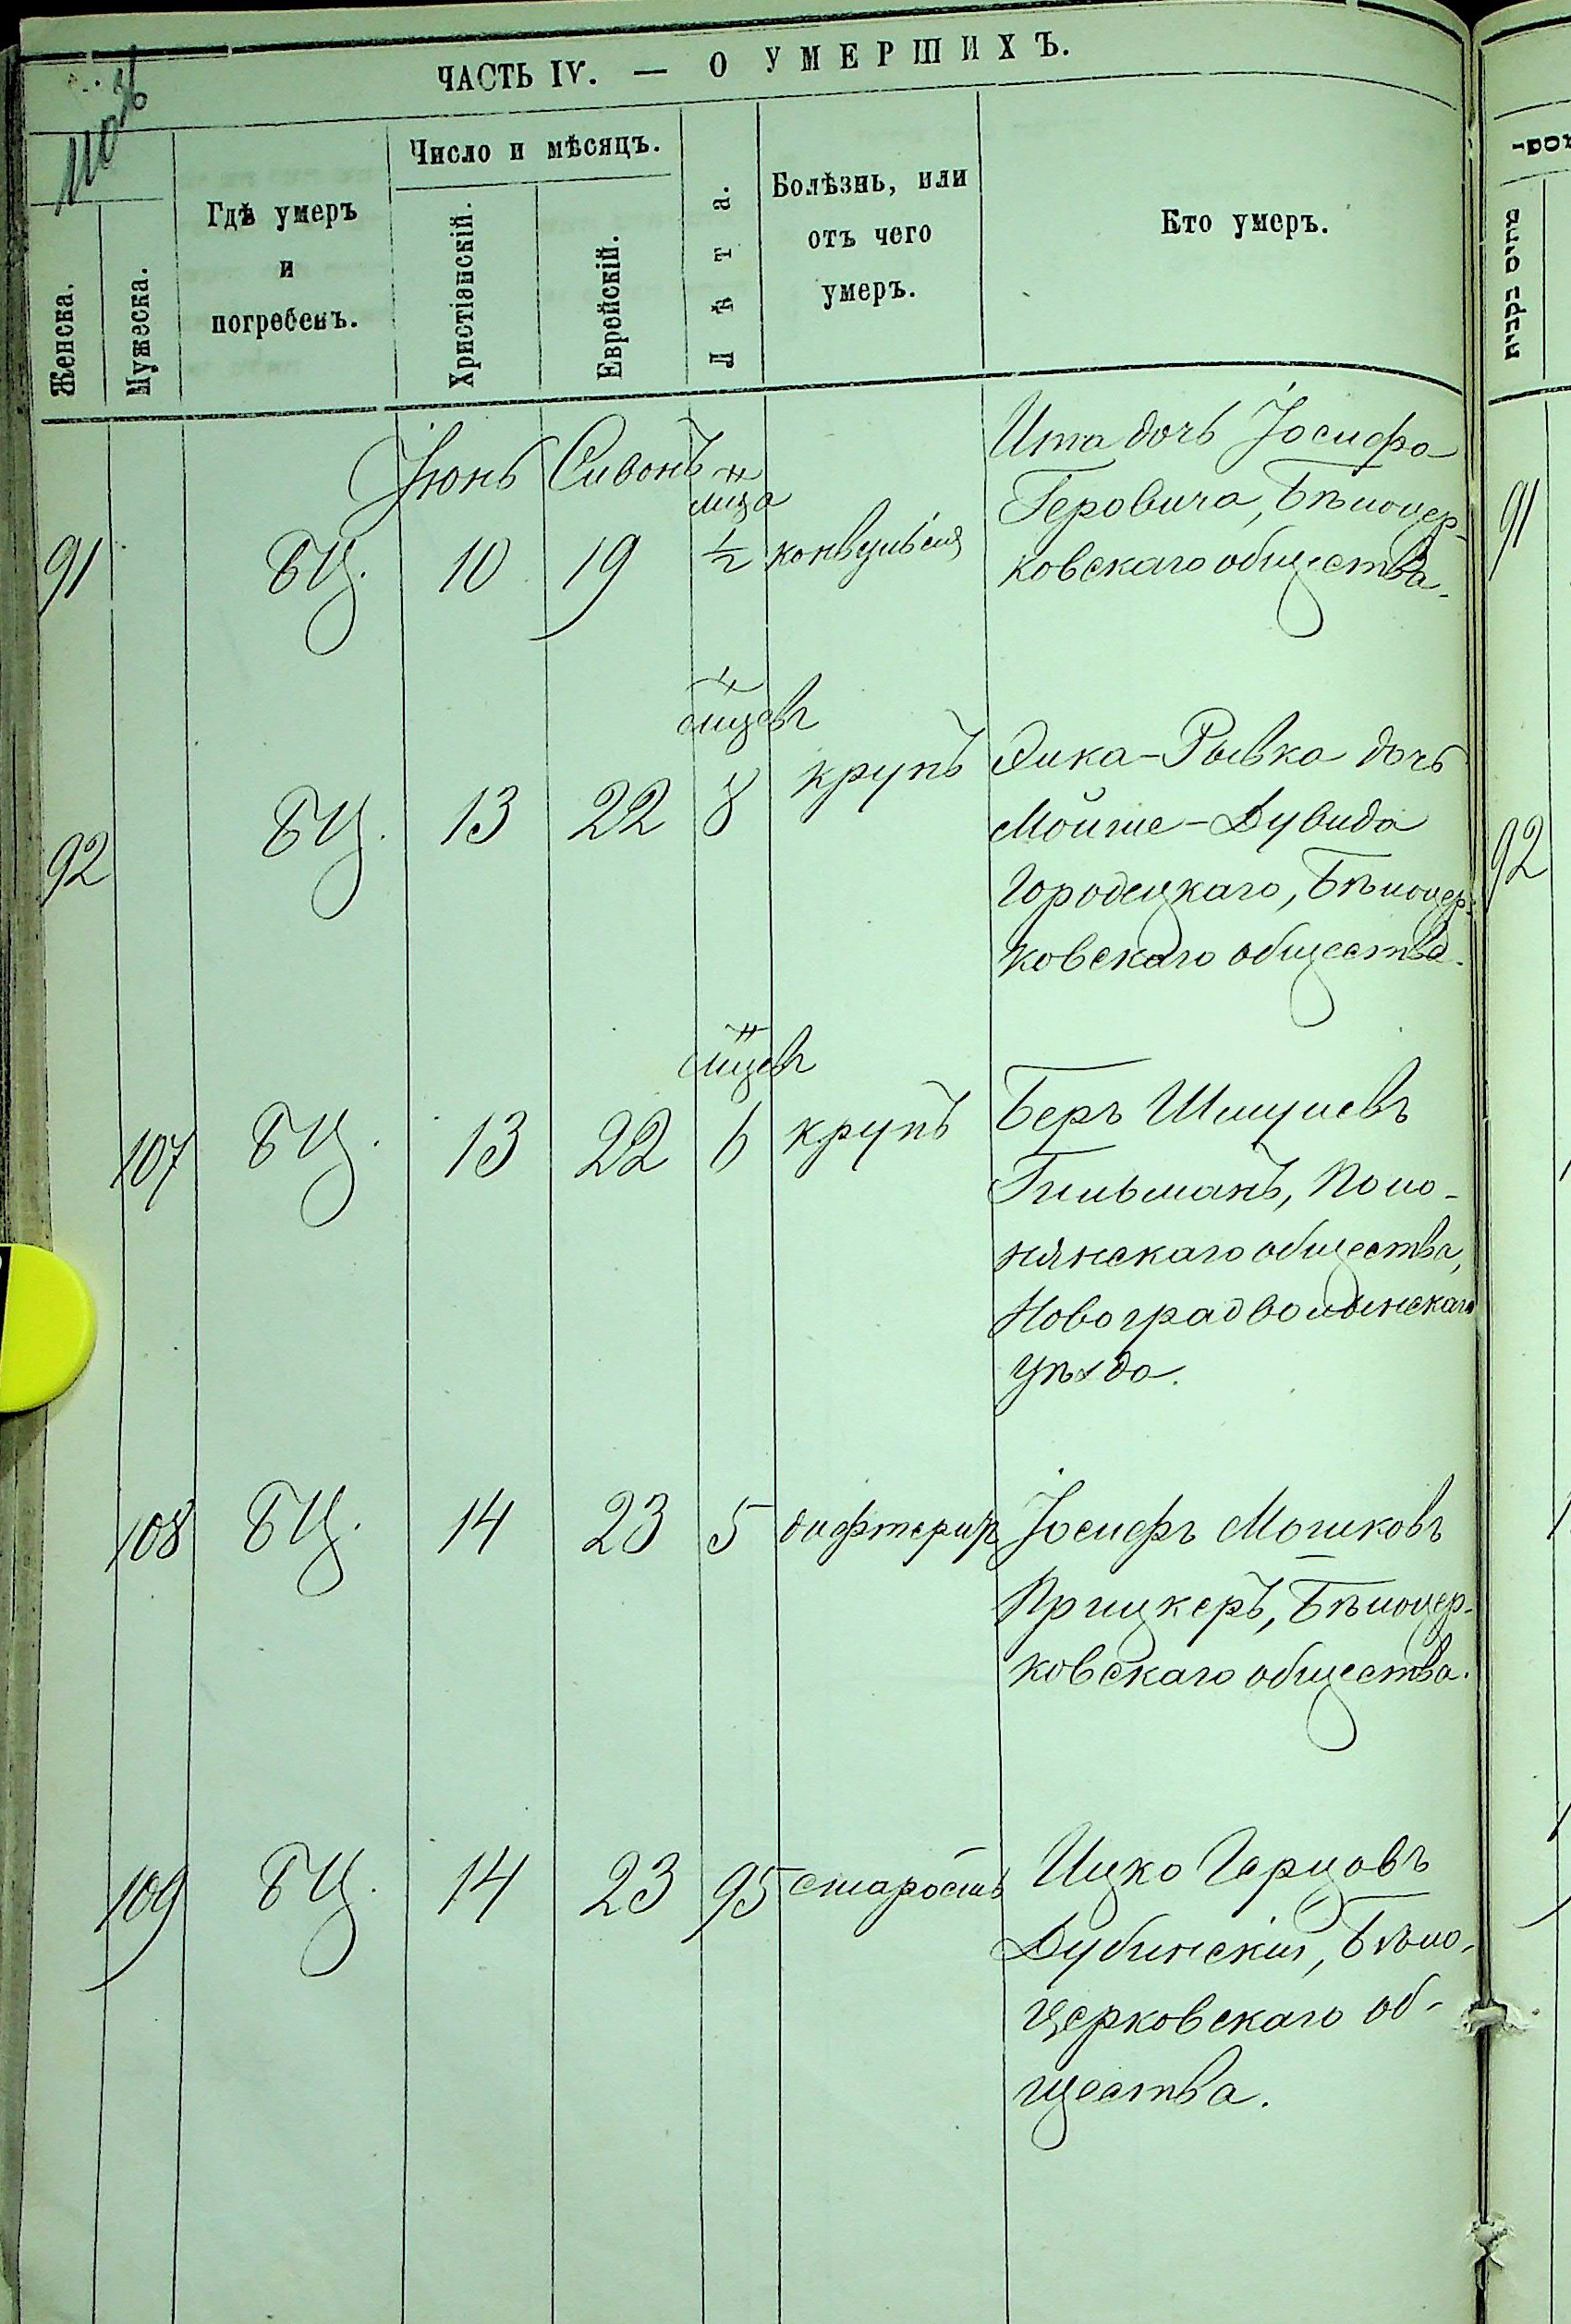 ЧАСТЬ IV. — О УМЕРШИХЪ.
Женска.
Мужеска.
Гдѣ умеръ
и
погребенъ.
Число и мѣсяцъ.
Христіанскій.
Еврейскій.
Лѣта.
Болѣзнь, или
отъ чего
умеръ.
Кто умеръ.
Іюнь Сивонъ
91 БЦ. 10 19 м-ца ½ конвульсія
Ита дочь Іосифа
Геровича, Бѣлоцер-
ковскаго общества.
92 БЦ. 13 22 м-цевъ 8 крупъ
Элка-Рывка дочь
Мойше-Дувида
Городецкаго, Бѣлоцер-
ковскаго общества.
107 БЦ. 13 22 м-цевъ 6 крупъ
Беръ Шмулевъ
Гильманъ, Поло-
нянскаго общества,
Новоградволынскаго
уѣзда.
108 БЦ. 14 23 5 дифтеритъ
Іосифъ Мошковъ
Прицкеръ, Бѣлоцер-
ковскаго общества.
109 БЦ. 14 23 95 старость
Ицко Герцовъ
Дубинскій, Бѣло-
церковскаго об-
щества.
91
92